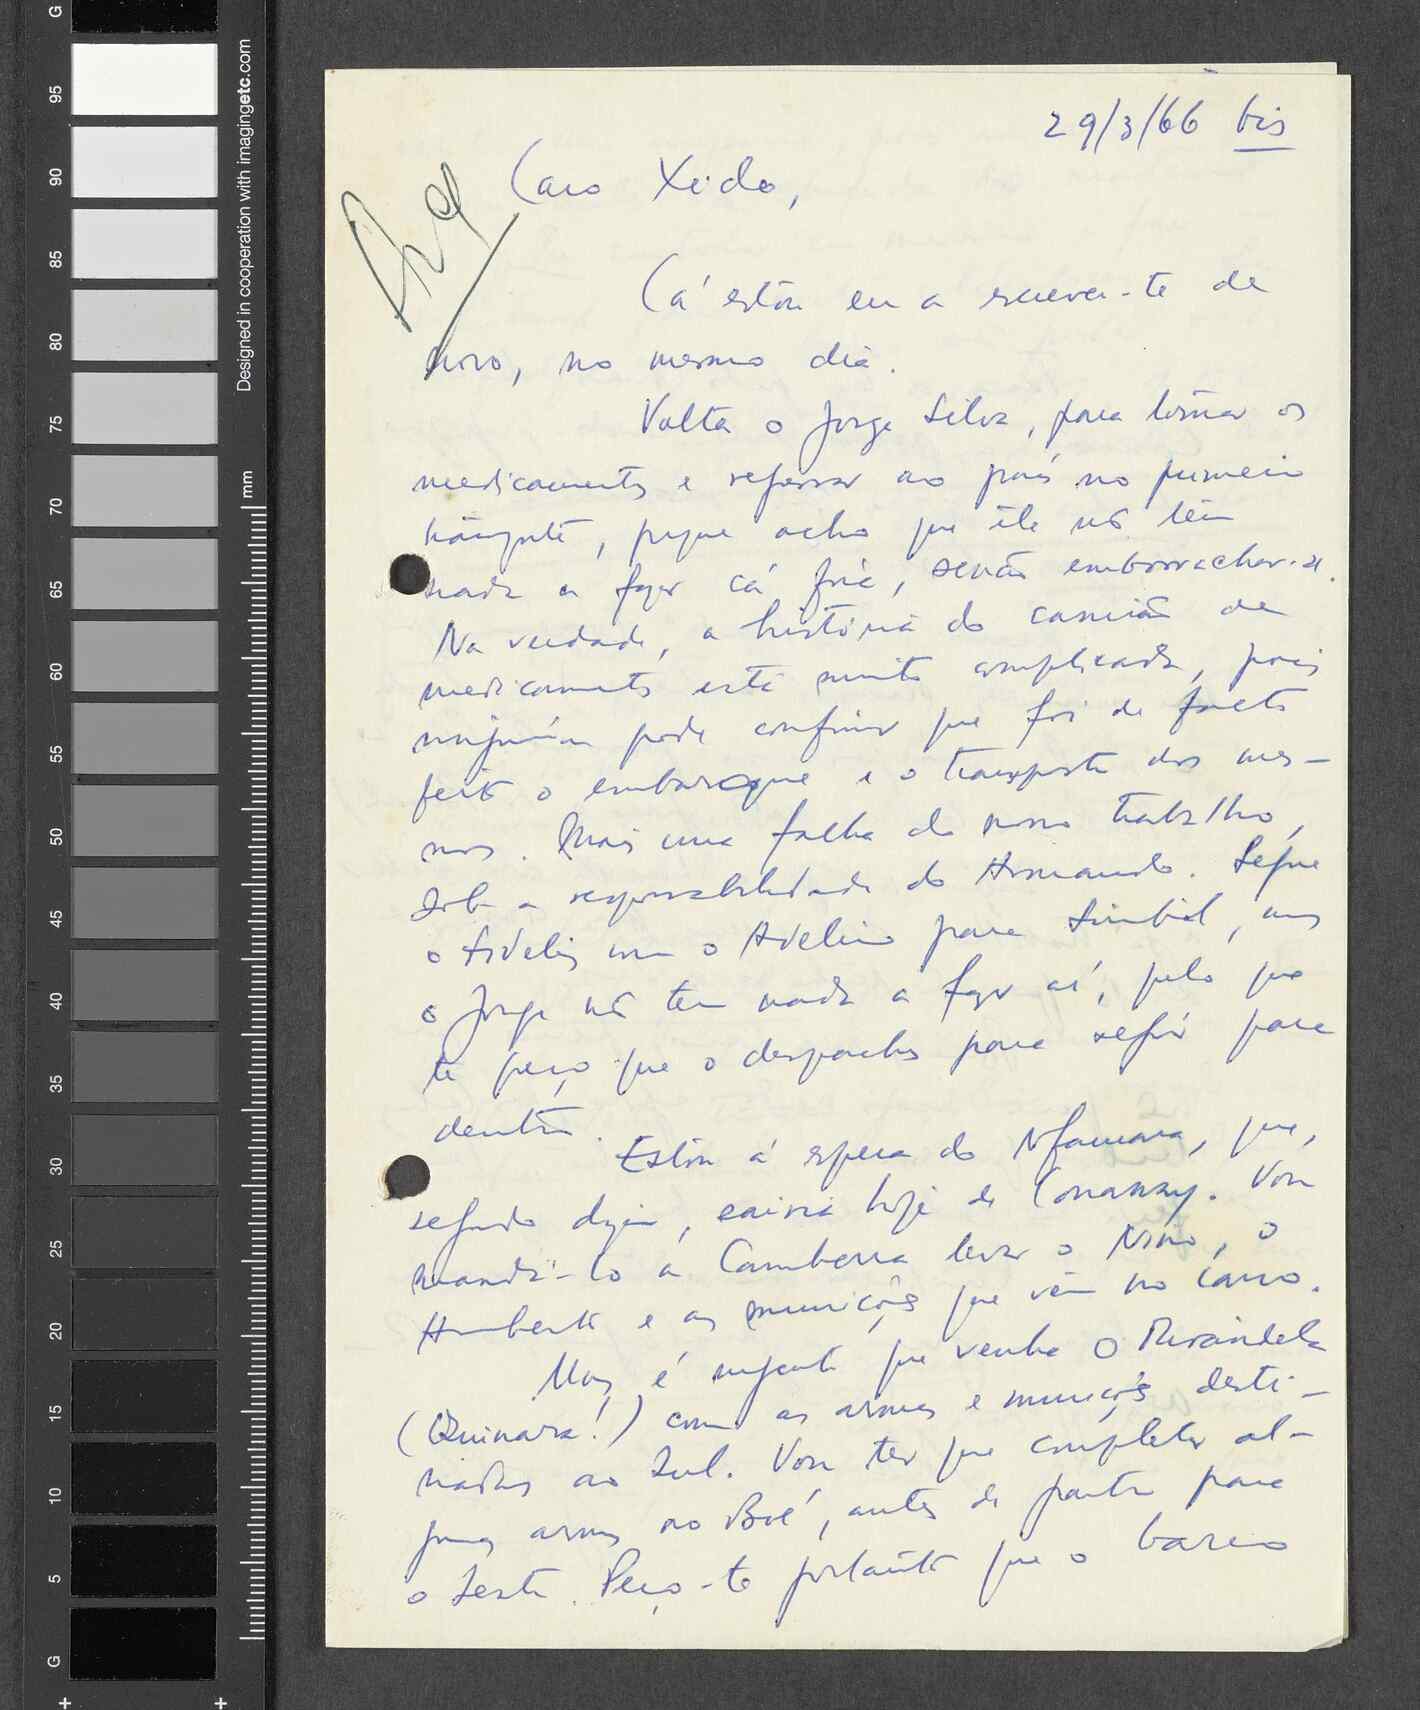 29/3/66 bis
Caro Xido,
Cá estou eu a escrever-te de
novo, no mesmo dia.
Volta o Jorge Silva, para tomar os
medicamentos e regressar ao país no primeiro
transporte, porque acho que êle não tem
nada a fazer cá fora, senão emborrachar-se.
Na verdade, a história do camião de
medicamentos está muito complicada, pois
ninguém pode confirmar que foi de facto
feito o embarque e o transporte dos mes-
mos. Mais uma falha do nosso trabalho,
sob a responsabilidade do Armando. Segue
o Fidelis com o Adelino para Simbél, mas
o Jorge não tem nada a fazer aí, pelo que
te peço que o despaches para seguir para
dentro.
Estou à espera do Nfamara, que,
segundo dizem, sairia hoje de Conakry. Vou
mandá-lo a Camberra levar o Nino, o
Humberto e as munições que vêm no carro.
Mas é urgente que venha o Mirandela
(Quinara!) com as armas e munições desti-
nadas ao Sul. Vou ter que completar al-
gumas armas no Boé, antes de partir para
o Leste. Peço-te portanto que o barco
G
95
90
85
80
75
70
65
60
55
50
45
40
35
30
25
20
15
10
5
G
mm
Designed in cooperation with imagingetc.com